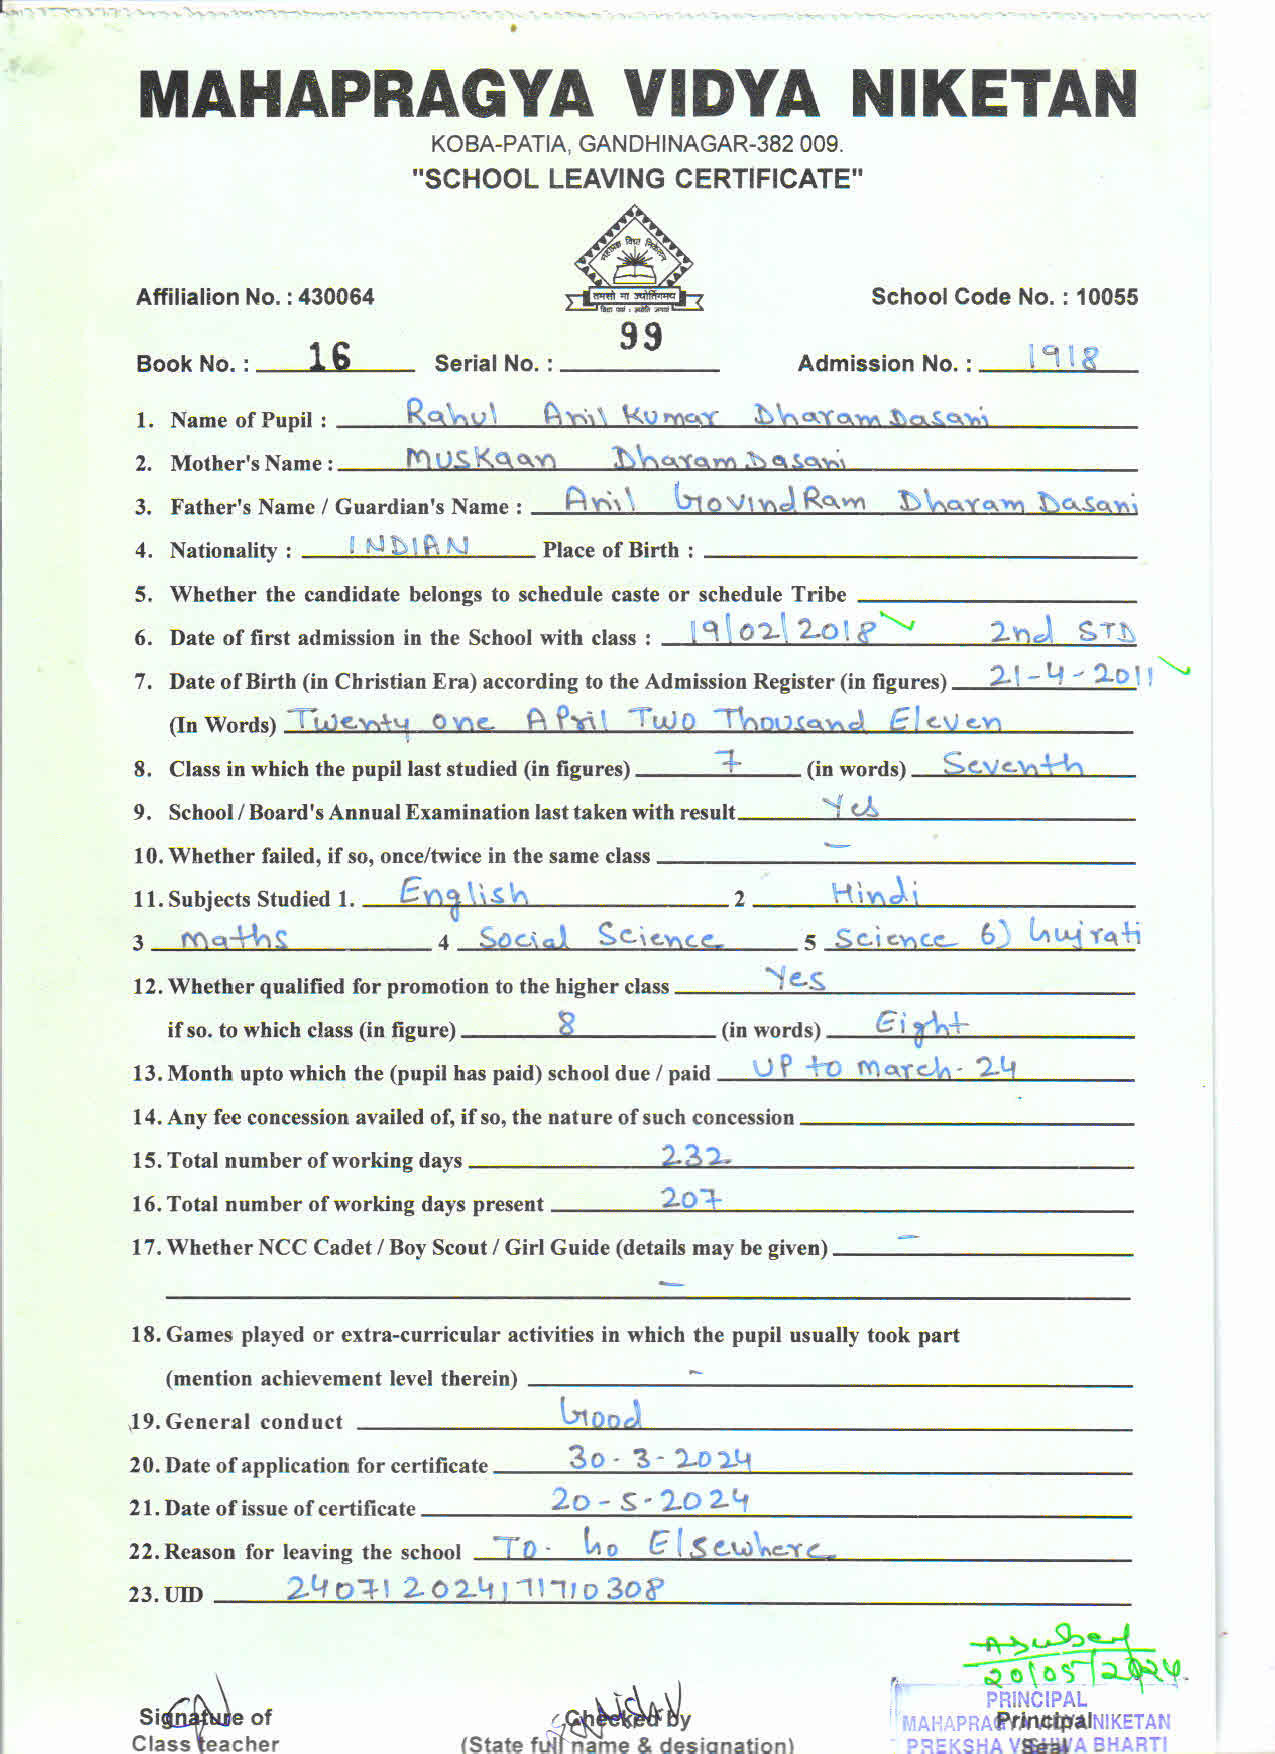 MAHAPRAGYA VIDYA NIKETAN
KOBA-PATIA, GANDHINAGAR-382 009.
"SCHOOL LEAVING CERTIFICATE"
महाप्रज्ञ विद्या निकेतन
तमसो मा ज्योतिर्गमय
Affilialion No. : 430064 School Code No. : 10055
Book No. : 16 Serial No. : 99 Admission No. : 1918
1. Name of Pupil : Rahul Anil Kumar DharamDasani
2. Mother's Name : Muskaan DharamDasani
3. Father's Name / Guardian's Name : Anil GovindRam DharamDasani
4. Nationality : INDIAN Place of Birth :
5. Whether the candidate belongs to schedule caste or schedule Tribe
6. Date of first admission in the School with class : 19/02/2018 2nd STD
7. Date of Birth (in Christian Era) according to the Admission Register (in figures) 21-4-2011
(In Words) Twenty one April Two Thousand Eleven
8. Class in which the pupil last studied (in figures) 7 (in words) Seventh
9. School / Board's Annual Examination last taken with result Yes
10. Whether failed, if so, once/twice in the same class -
11. Subjects Studied 1. English 2 Hindi
3 Maths 4 Social Science 5 Science 6) Gujrati
12. Whether qualified for promotion to the higher class Yes
if so. to which class (in figure) 8 (in words) Eight
13. Month upto which the (pupil has paid) school due / paid UP to March-24
14. Any fee concession availed of, if so, the nature of such concession
15. Total number of working days 232
16. Total number of working days present 207
17. Whether NCC Cadet / Boy Scout / Girl Guide (details may be given) -
-
18. Games played or extra-curricular activities in which the pupil usually took part
(mention achievement level therein) -
19. General conduct Good
20. Date of application for certificate 30-3-2024
21. Date of issue of certificate 20-5-2024
22. Reason for leaving the school To Go Elsewhere
23. UID 240712024171710308
20/05/2024
PRINCIPAL
Signature of Checked by Principal
MAHAPRAGYA VIDYA NIKETAN
Class teacher (State full name & designation) Seal
PREKSHA VISHWA BHARTI